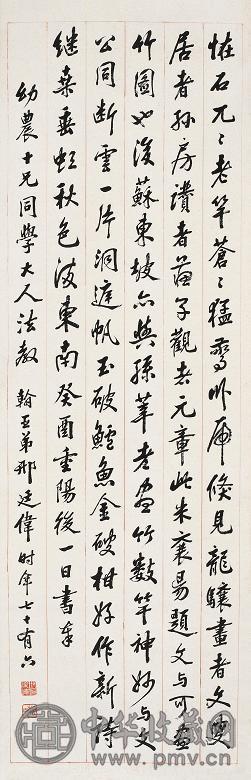 恠石兀〻老竿蒼〻猛卧虎倏見龍驤畫者文與
居者孫房讚者觀者元章此米襄陽題文与可畫
竹圖也後蘇東坡亦與孫莘老畫竹數竿神妙与文
公同断雲一片洞庭帆玉破鱸魚金破柑好作新詩
継桑苧垂虹秋色滿東南癸酉重陽後一日書奉
幼農十兄同學大人法教 翰臣弟邢廷偉时年七十有六
中华收藏网
www.pmvc.com